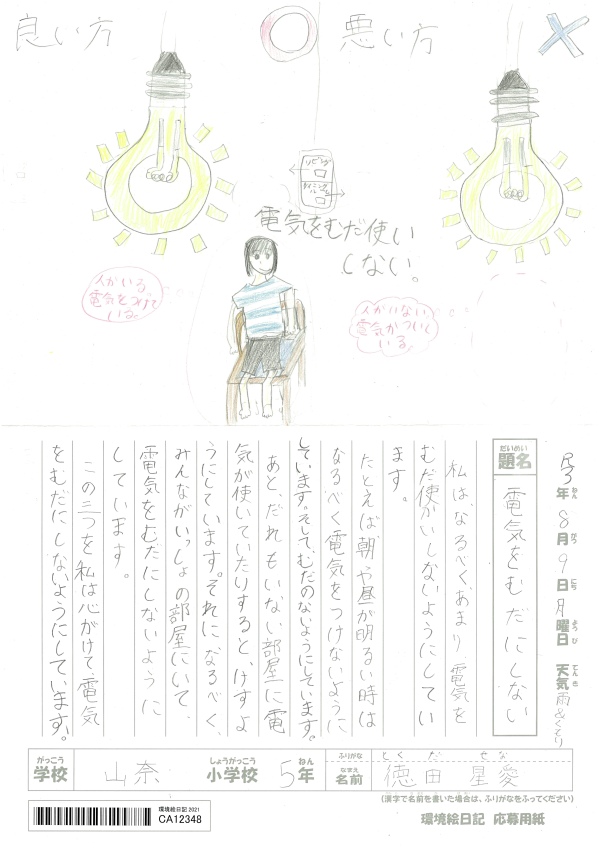 良い方
悪い方
リビング
ダイニング
ルーム
電気をむだ使い
しない。
人がいる。
電気をつけて
いる。
人がいない
電気がついて
いる。
R3年8月9日月曜日 天気雨&くもり
ねん がつ にち ようび てんき
だいめい
題名
電気をむだにしない
私は、なるべく、あまり、電気を
むだ使かいしないようにしてい
ます。
たとえば、朝や昼が明るい時は
なるべく電気をつけないように
しています。そして、むだのないようにしています。
あと、だれもいない部屋に電
気が使いていたりすると、けすよ
うにしています。それに、なるべく、
みんながいっしょの部屋にいて、
電気をむだにしないように
しています。
この三つを私は心がけて、電気
をむだにしないようにしています。
がっこう しょうがっこう ねん ふりがな とくだ せな
学校 山奈 小学校 5年 なまえ 名前 徳田 星愛
(漢字で名前を書いた場合は、ふりがなをふってください)
環境絵日記 2021
CA12348
環境絵日記 応募用紙